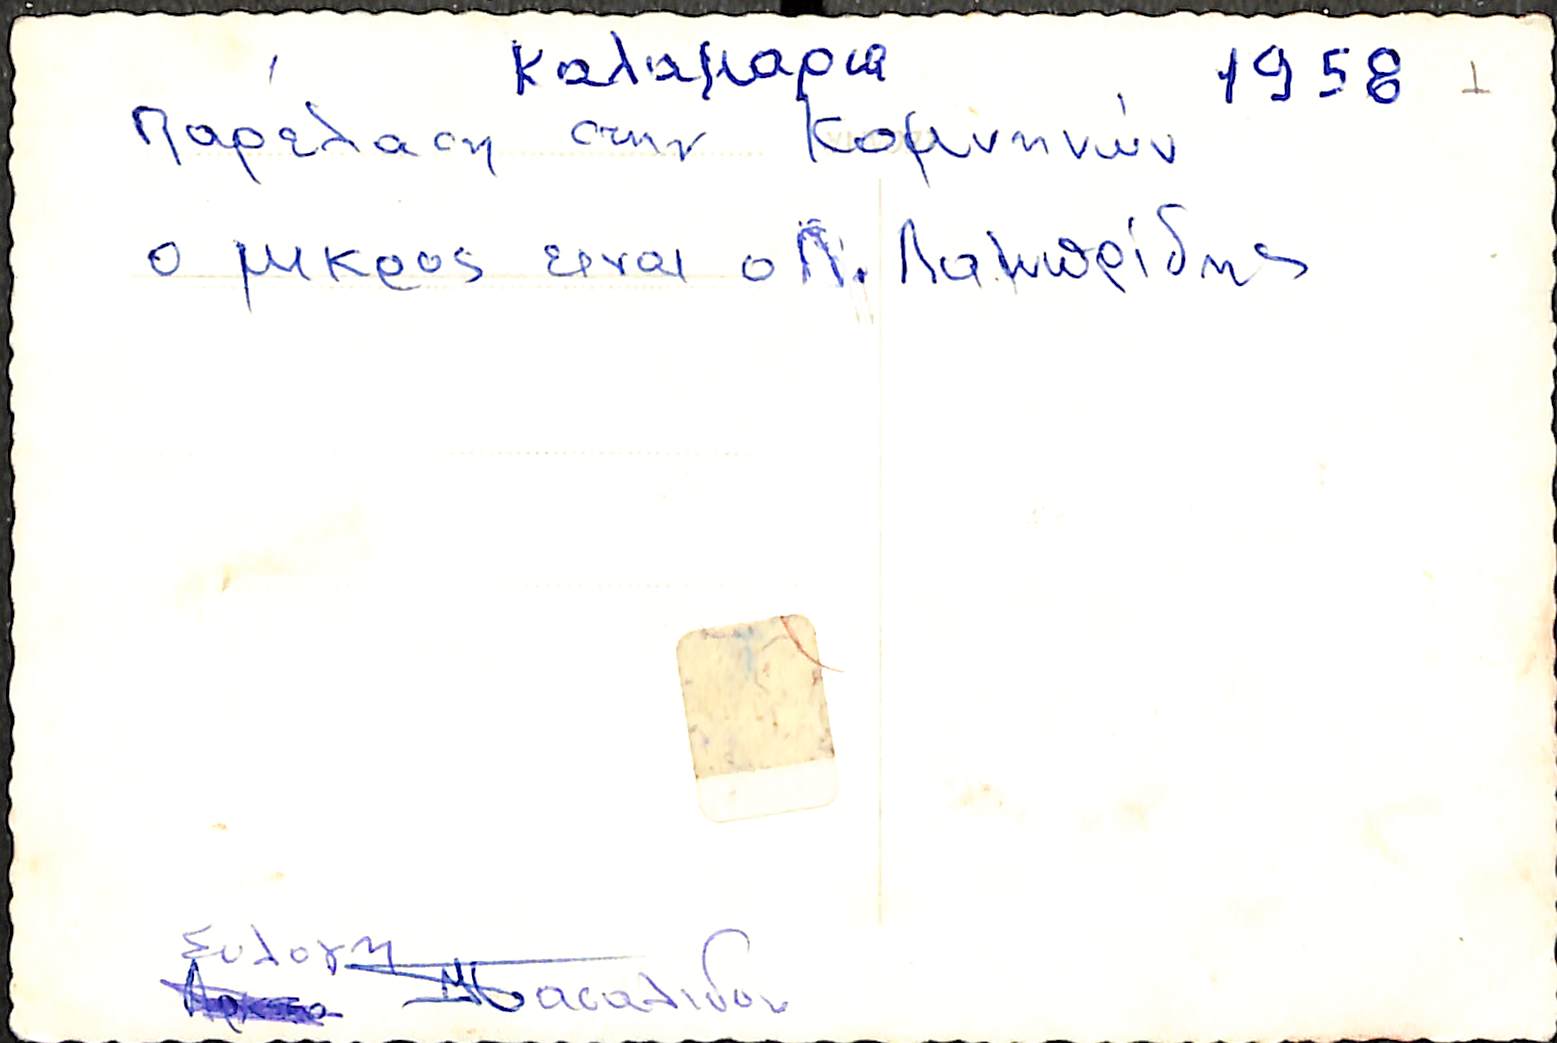 Καλαμαρια 1958 1
Παρέλαση στην Κομνηνών
ο μικρος ειναι ο Π. Λαμπρίδης
Συλογη
Μπασαλιδου